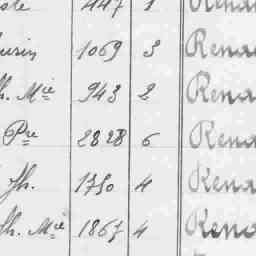 447 1 Rena
1069 3 Rena
h. Mie 943 2 Rena
Pre 2828 6 Rena
Jh. 1750 4 Rena
Jh. Mie 1867 4 Rena